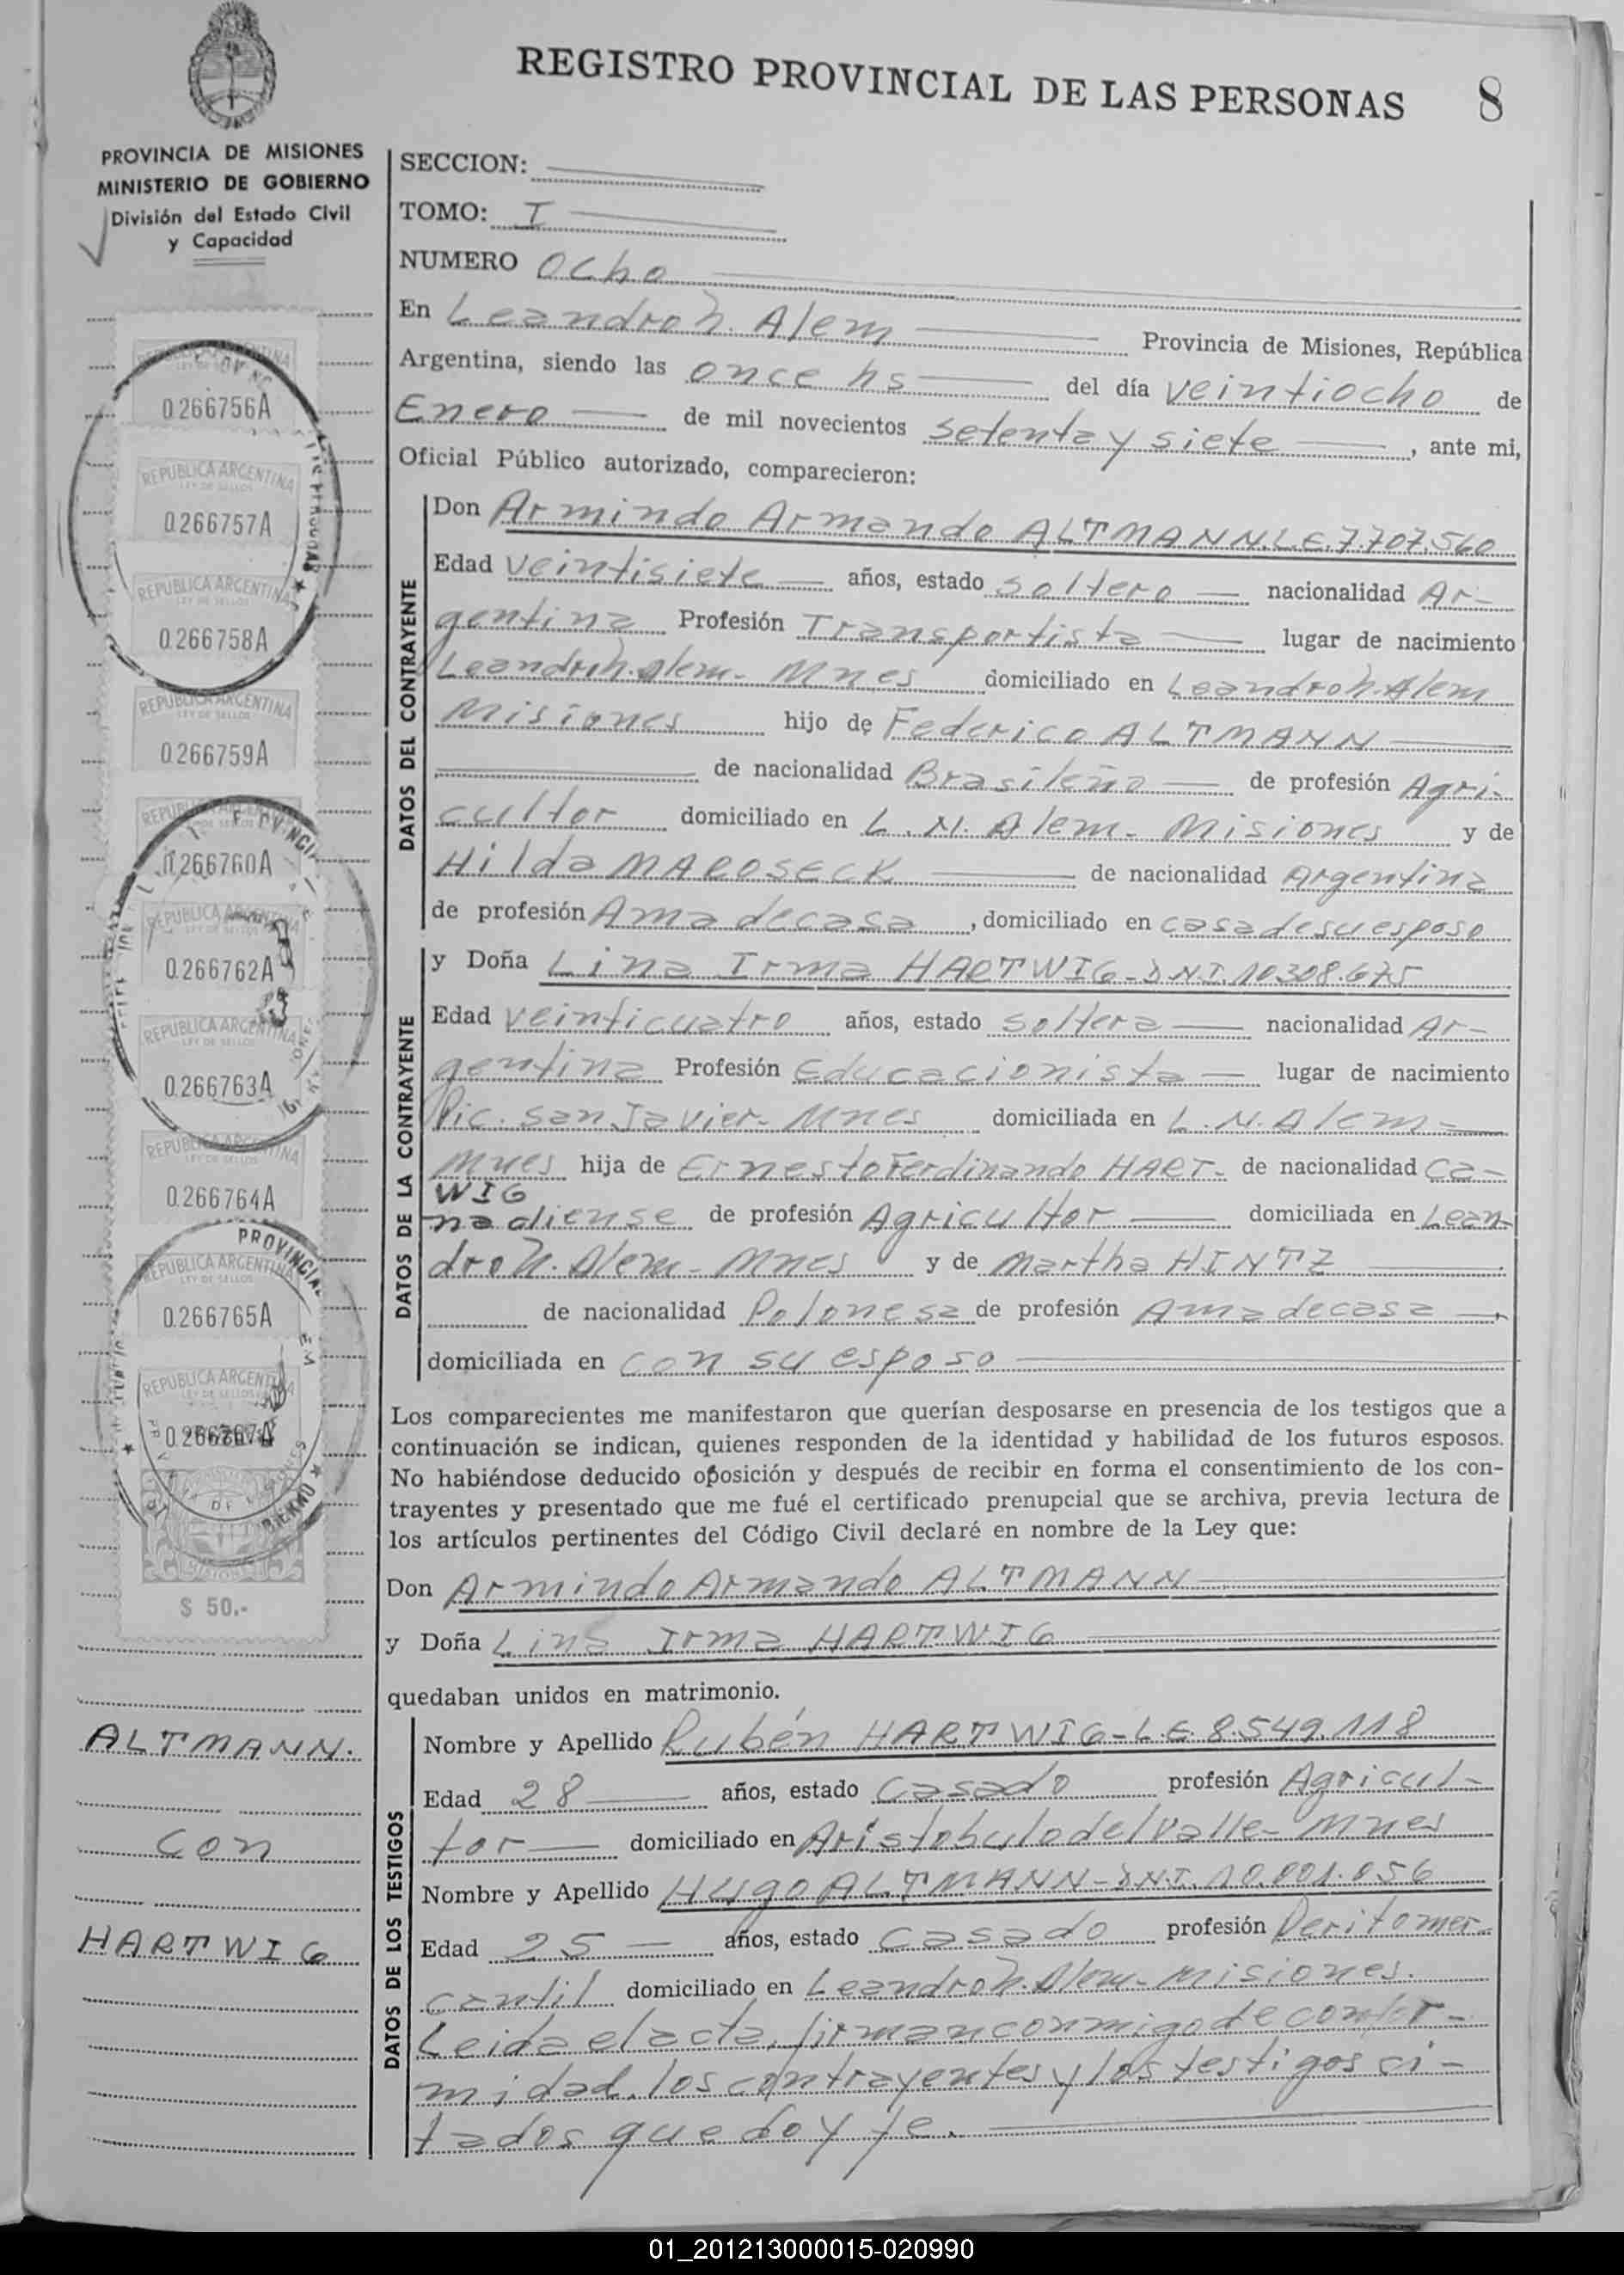 REGISTRO PROVINCIAL DE LAS PERSONAS 8
PROVINCIA DE MISIONES
MINISTERIO DE GOBIERNO
División del Estado Civil
y Capacidad
SECCION:
TOMO: I
NUMERO Ocho
En Leandro N. Alem Provincia de Misiones, República
Argentina, siendo las once hs del día veintiocho de
Enero de mil novecientos setenta y siete, ante mi,
Oficial Público autorizado, comparecieron:
DATOS DEL CONTRAYENTE
Don Armindo Armando ALTMANN.L.E.7.707.560
Edad veintisiete años, estado soltero nacionalidad Ar-
gentina Profesión Transportista lugar de nacimiento
Leandro N. Alem - Mnes domiciliado en Leandro N. Alem
Misiones hijo de Federico ALTMANN
de nacionalidad Brasileño de profesión Agri-
cultor domiciliado en L. N. Alem - Misiones y de
Hilda MAROSECK de nacionalidad Argentina
de profesión Ama de casa, domiciliado en casa de su esposo
DATOS DE LA CONTRAYENTE
y Doña Lina Irma HARTWIG - DNI. 10308.675
Edad veinticuatro años, estado soltera nacionalidad Ar-
gentina Profesión Educacionista lugar de nacimiento
Pic. San Javier - Mnes domiciliada en L. N. Alem -
Mnes hija de Ernesto Ferdinando HART- de nacionalidad Ca-
WIG
nadiense de profesión Agricultor domiciliada en Lean-
dro N. Alem - Mnes y de Martha HINTZ
de nacionalidad Polonesa de profesión Ama de casa,
domiciliada en con su esposo
Los comparecientes me manifestaron que querían desposarse en presencia de los testigos que a
continuación se indican, quienes responden de la identidad y habilidad de los futuros esposos.
No habiéndose deducido oposición y después de recibir en forma el consentimiento de los con-
trayentes y presentado que me fué el certificado prenupcial que se archiva, previa lectura de
los artículos pertinentes del Código Civil declaré en nombre de la Ley que:
Don Armindo Armando ALTMANN
y Doña Lina Irma HARTWIG
quedaban unidos en matrimonio.
DATOS DE LOS TESTIGOS
Nombre y Apellido Rubén HARTWIG - L.E. 8.549.118
Edad 28 años, estado Casado profesión Agricul-
tor domiciliado en Aristobulo del Valle - Mnes
Nombre y Apellido Hugo ALTMANN - DNI. 10.001.056
Edad 25 años, estado Casado profesión Perito mer-
cantil domiciliado en Leandro N. Alem - Misiones.
Leida el acta, firman conmigo de confor-
midad, los contrayentes y los testigos ci-
tados que doy fe.
0.266756A
REPUBLICA ARGENTINA
LEY DE SELLOS
0.266757A
REPUBLICA ARGENTINA
LEY DE SELLOS
0.266758A
REPUBLICA ARGENTINA
LEY DE SELLOS
0.266759A
0.266760A
0.266762A
REPUBLICA ARGENTINA
LEY DE SELLOS
0.266763A
REPUBLICA ARGENTINA
LEY DE SELLOS
0.266764A
PROVINCIAL
REPUBLICA ARGENTINA
LEY DE SELLOS
0.266765A
REPUBLICA ARGENTINA
LEY DE SELLOS
$ 50.-
ALTMANN.
con
HARTWIG
01_201213000015-020990